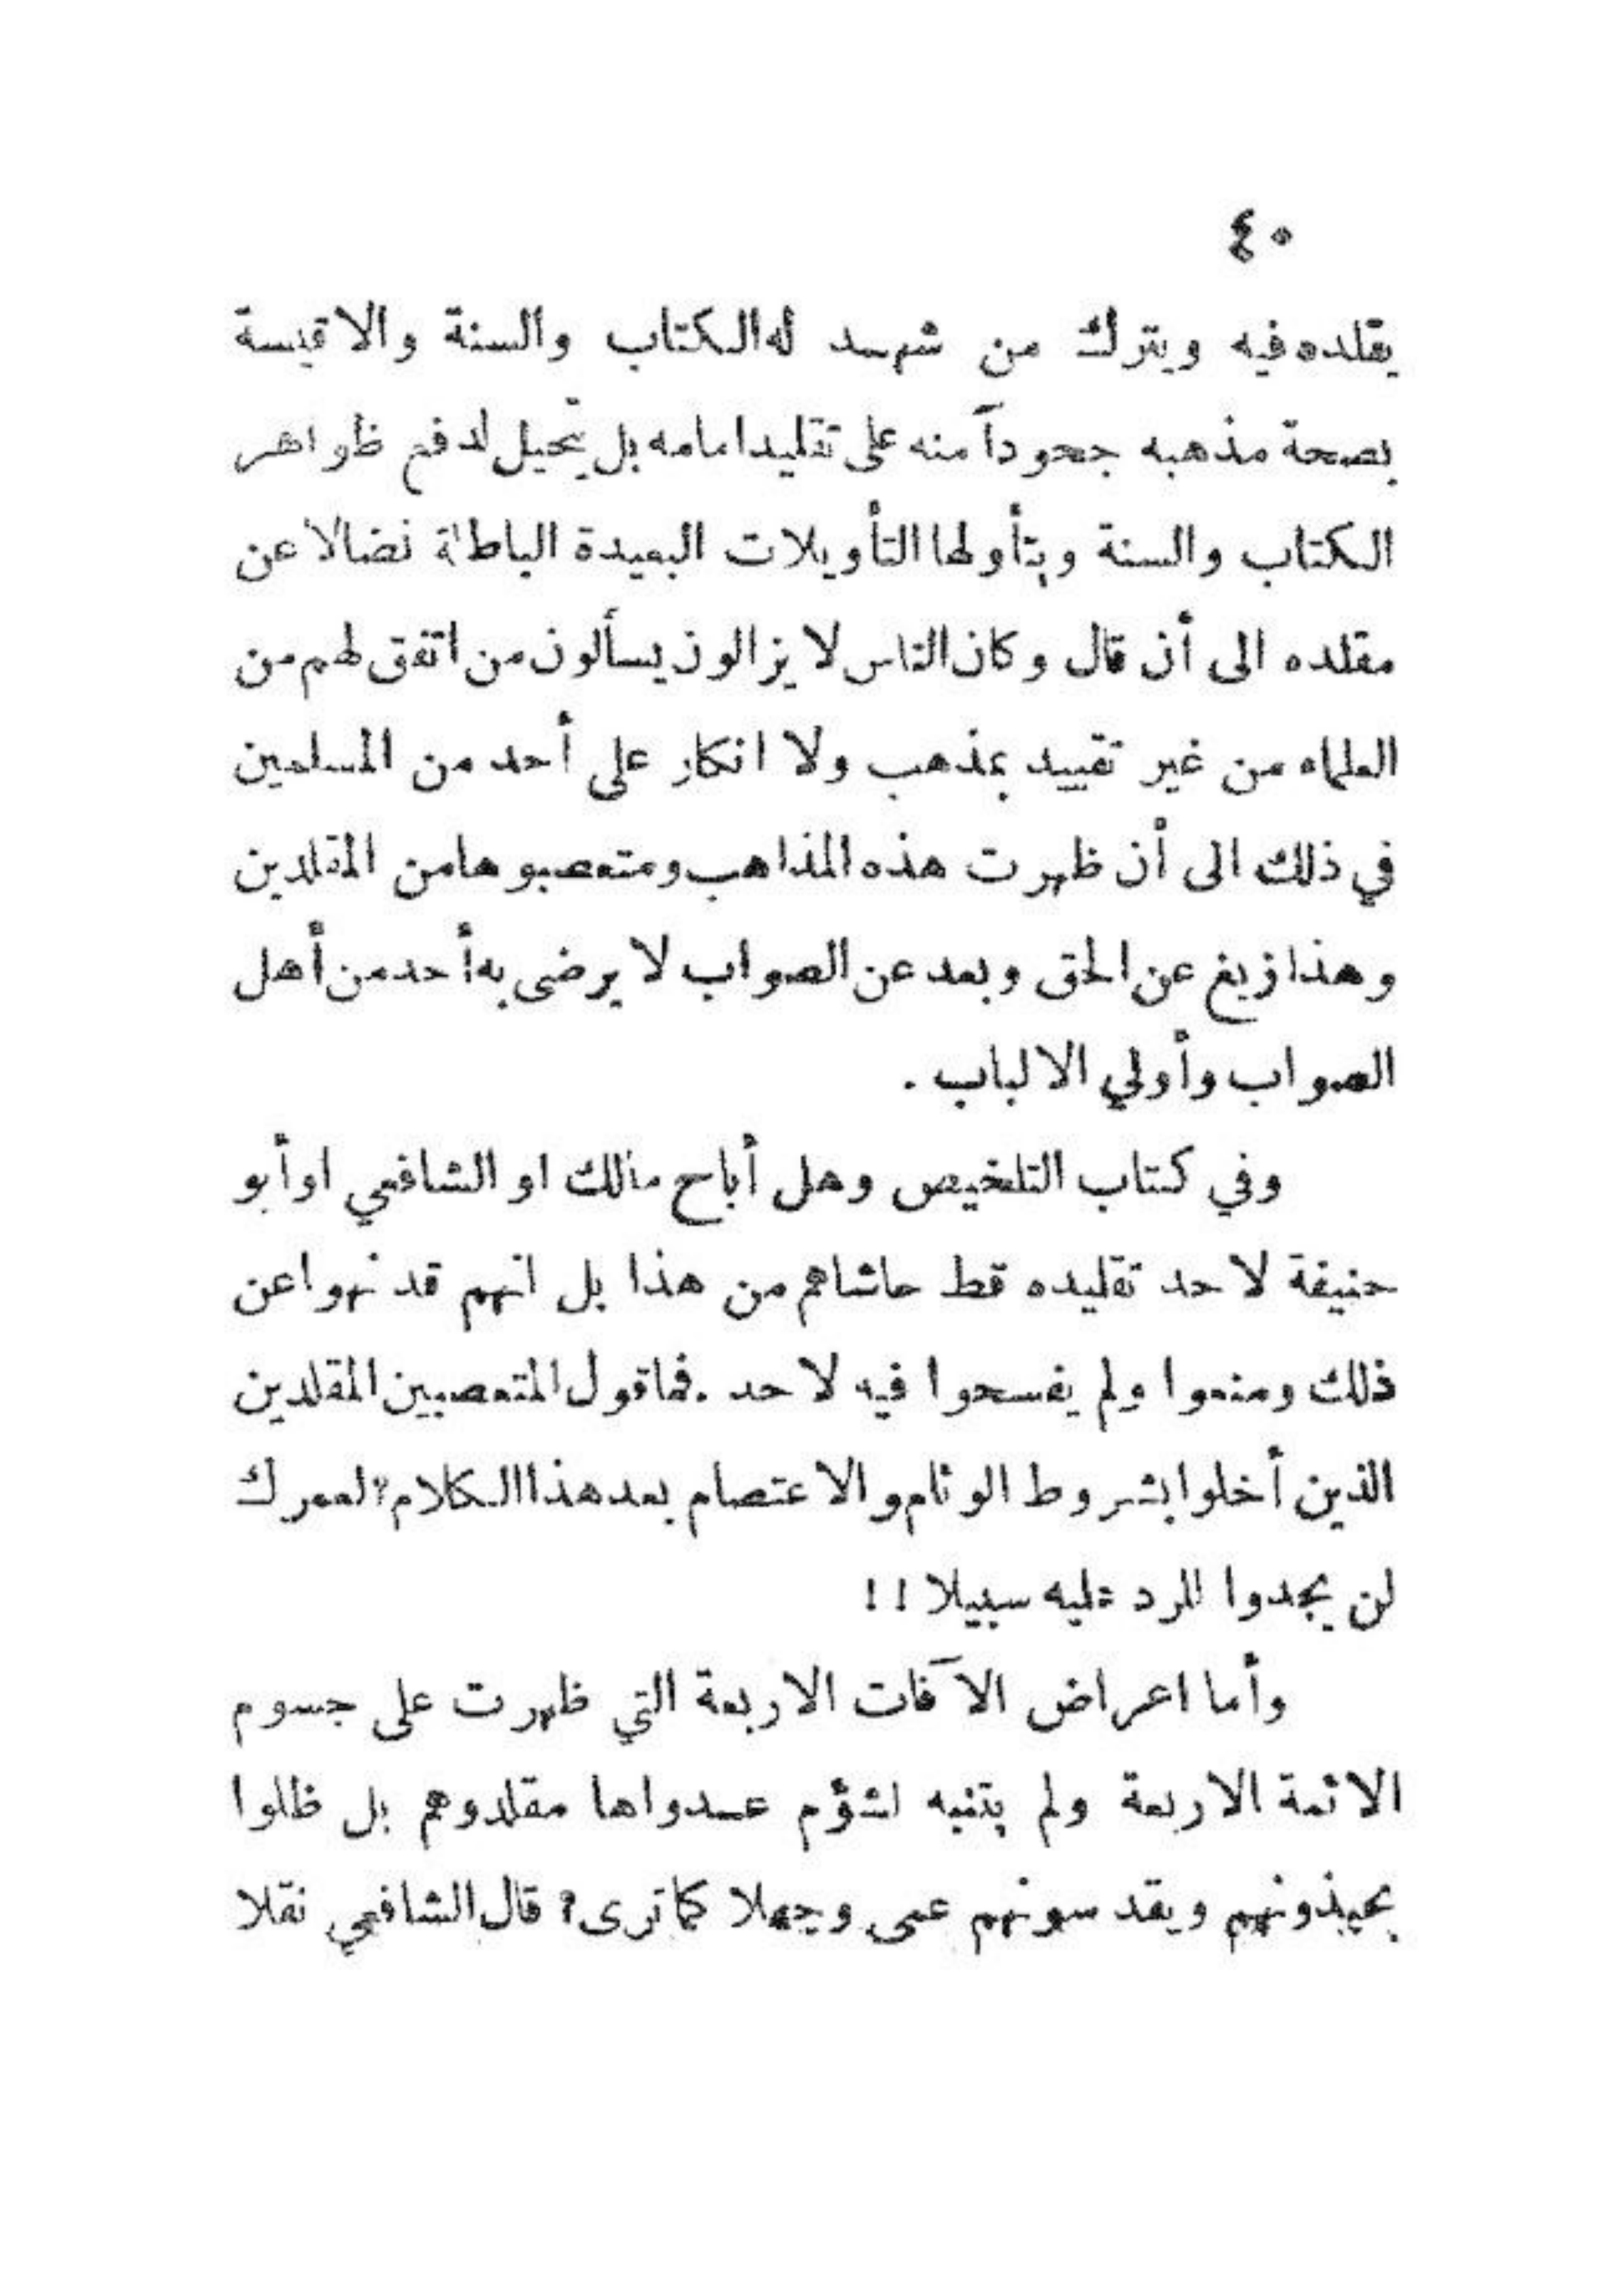 ٤٠
يقلده فيه ويترك من شهد له الكتاب والسنة والاقيسة
بصحة مذهبه جحوداً منه على تقليد امامه بل يتحيل لدفع ظواهر
الكتاب والسنة ويتأولها التأويلات البعيدة الباطلة نضالا عن
مقلده الى أن قال وكان الناس لا يزالون يسألون من اتفق لهم من
العلماء من غير تقييد بمذهب ولا انكار على أحد من المسلمين
في ذلك الى أن ظهرت هذه المذاهب ومتعصبوها من المقلدين
وهذا زيغ عن الحق وبعد عن الصواب لا يرضى به أحد من أهل
الصواب وأولي الالباب .
وفي كتاب التلخيص وهل أباح مالك او الشافعي او أبو
حنيفة لاحد تقليده قط حاشاهم من هذا بل انهم قد نهوا عن
ذلك ومنعوا ولم يفسحوا فيه لاحد . فما قول المتعصبين المقلدين
الذين أخلوا بشروط الوئام والاعتصام بعد هذا الكلام؟ لعمرك
لن يجدوا للرد عليه سبيلا !!
وأما اعراض الآفات الاربعة التي ظهرت على جسوم
الائمة الاربعة ولم يتنبه لشؤم عدواها مقلدوهم بل ظلوا
يحبذونهم ويقدسونهم عمى وجهلا كما ترى؟ قال الشافعي نقلا